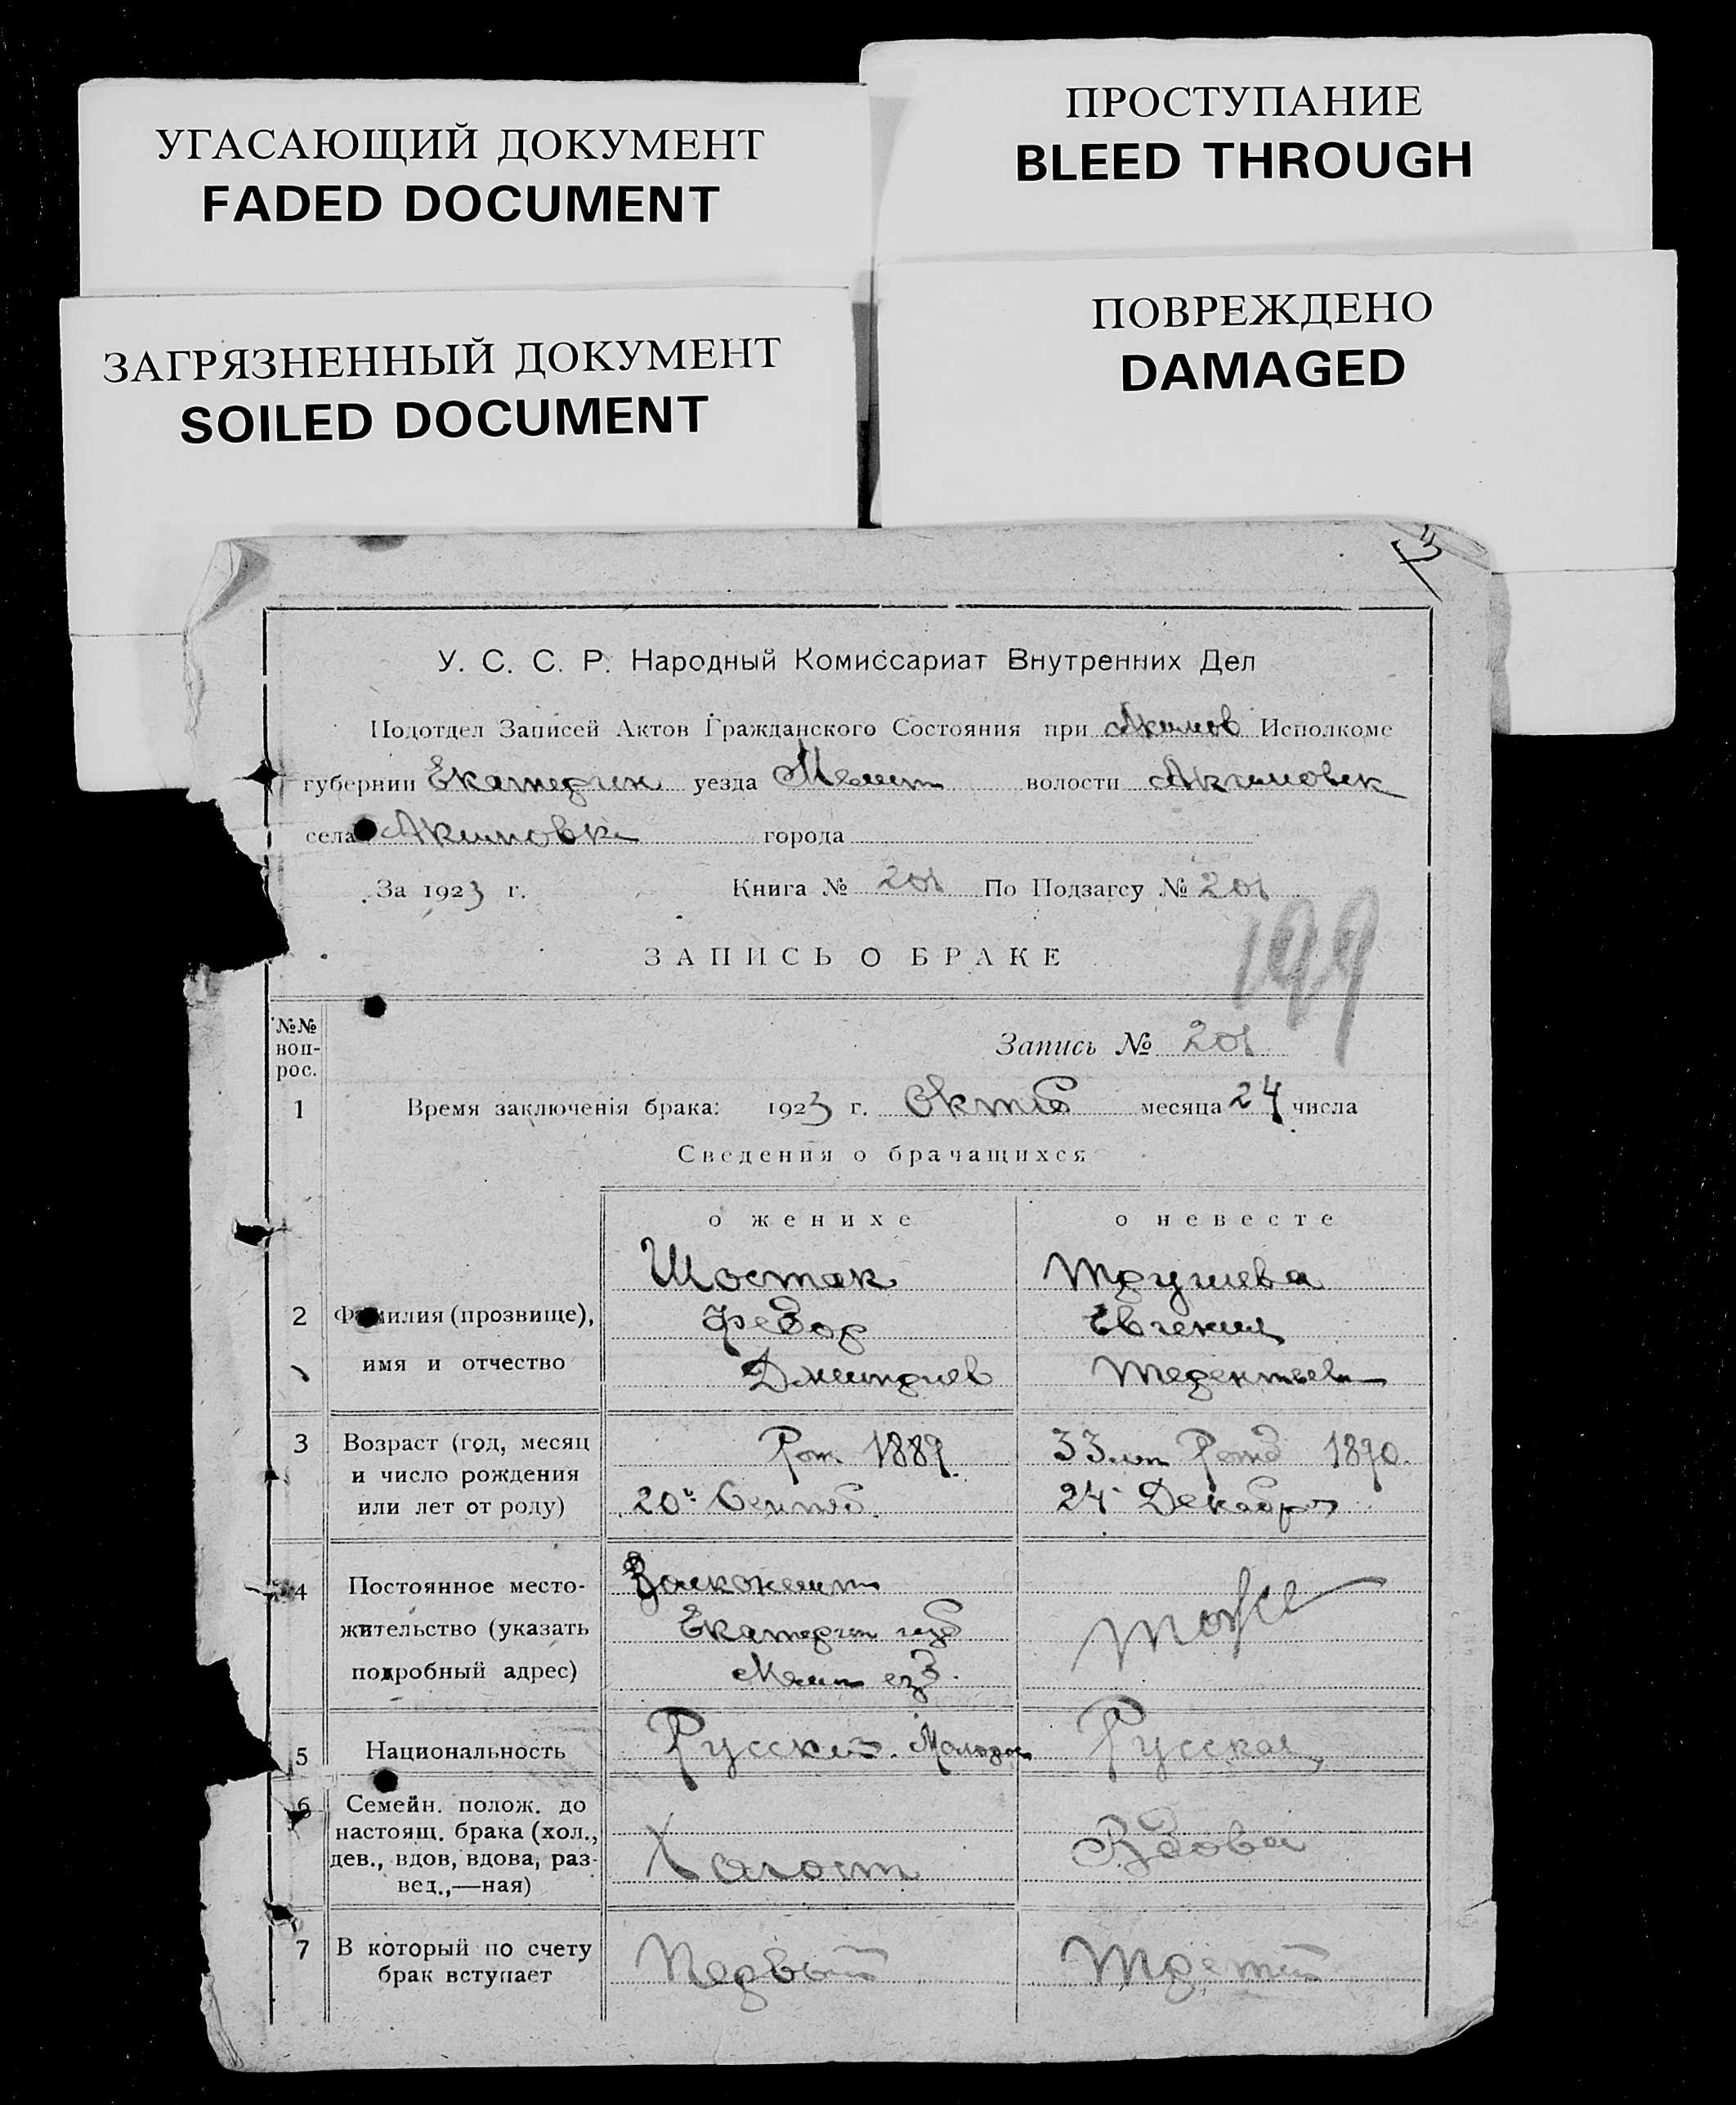 УГАСАЮЩИЙ ДОКУМЕНТ
FADED DOCUMENT
ПРОСТУПАНИЕ
BLEED THROUGH
ЗАГРЯЗНЕННЫЙ ДОКУМЕНТ
SOILED DOCUMENT
ПОВРЕЖДЕНО
DAMAGED
У. С. С. Р. Народный Комиссариат Внутренних Дел
Подотдел Записей Актов Гражданского Состояния при Акимов Исполкоме
губернии Екатерин уезда Мелит волости Акимовск
села Акимовка города
За 1923 г. Книга № 201 По Подзагсу № 201
199
ЗАПИСЬ О БРАКЕ
№№ воп-
рос.
Запись № 201
1 Время заключенія брака: 1923 г. Октяб месяца 24 числа
Сведения о брачащихся
о женихе о невесте
Шостак Трушева
2 Фамилия (прозвище), Федор Евгения
имя и отчество Дмитриев Терентьевн
3 Возраст (год, месяц Рож 1889. 33 лет Рожд 1890.
и число рождения
или лет от роду) 20 Сентяб. 24 Декабря
4 Постоянное место-
жительство (указать Екатерин губ тоже
подробный адрес) Мелит уезд.
5 Национальность Русский. Русская
6 Семейн. полож. до
настоящ. брака (хол.,
дев., вдов, вдова, раз-
вед.,—ная) Холост Вдова
7 В который по счету
брак вступает Первый Третий